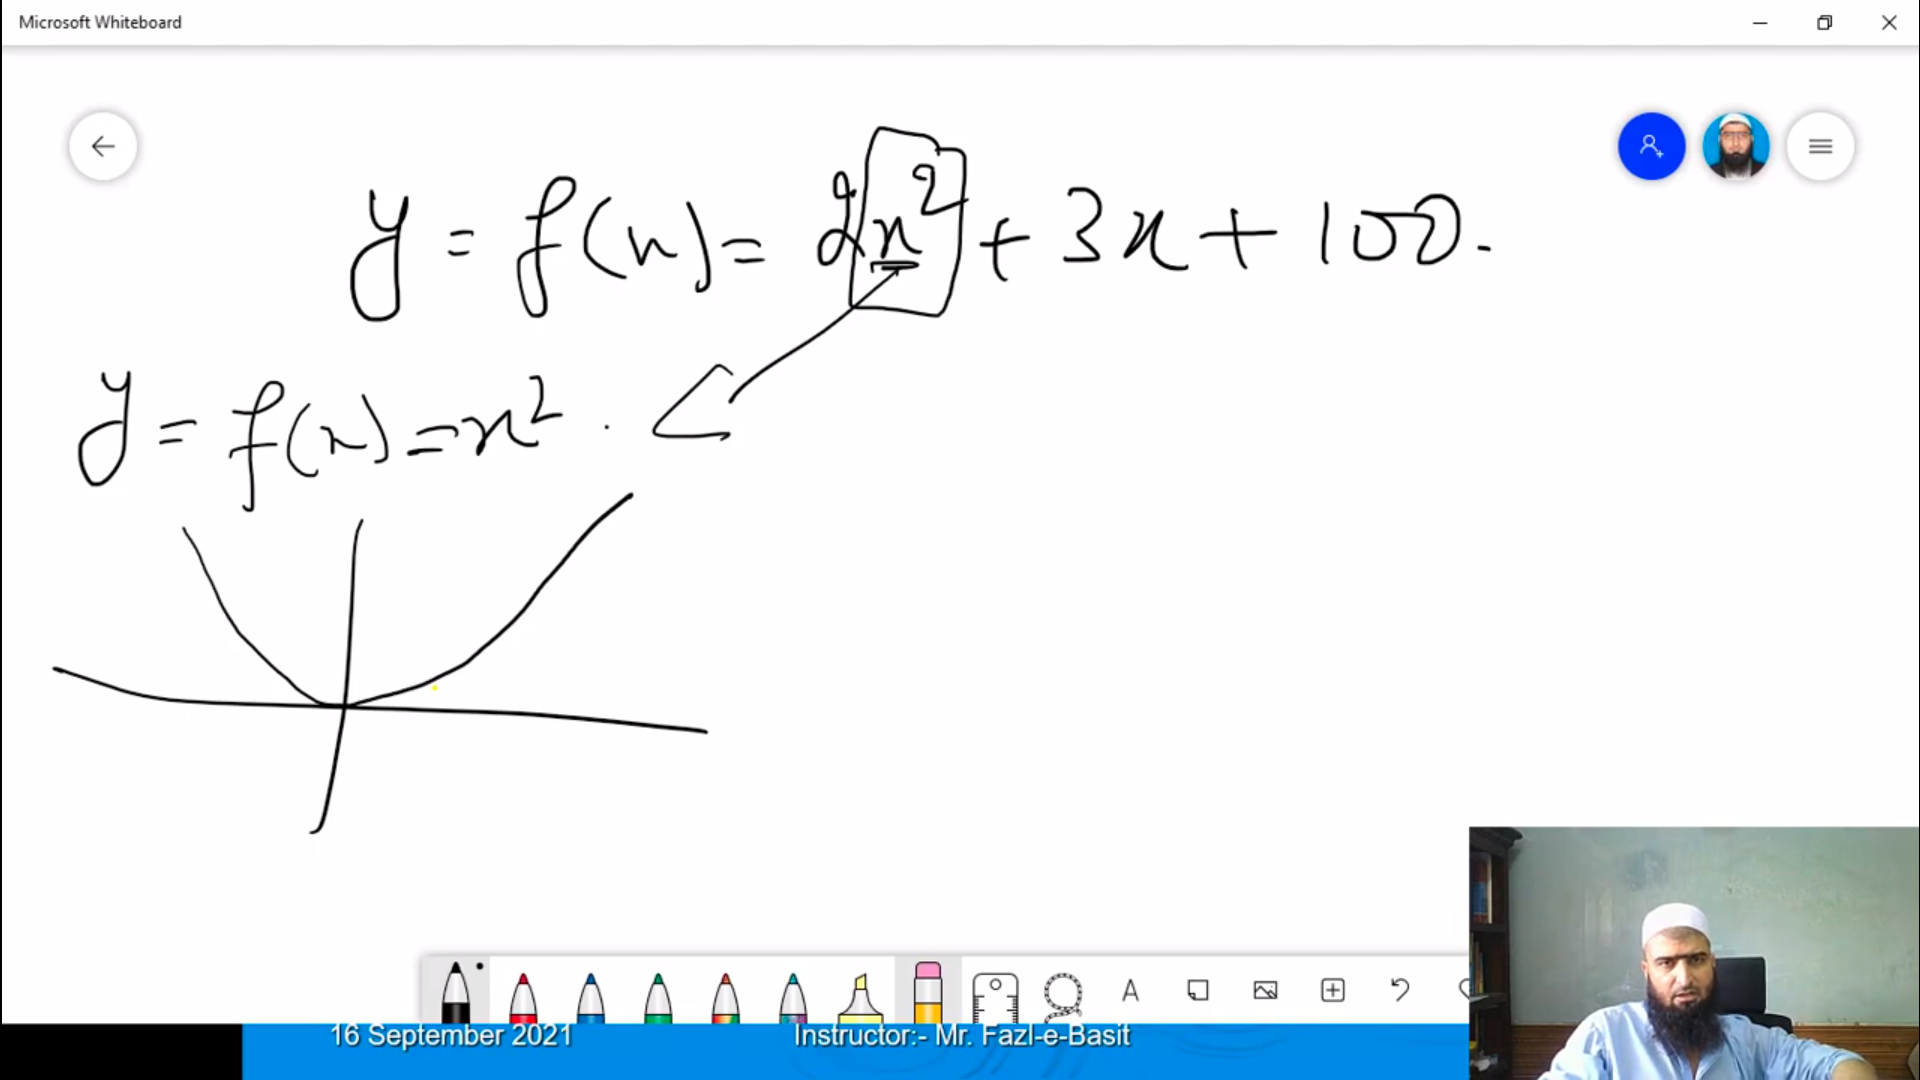 Microsoft Whiteboard
y = f(x) = 2x² + 3x + 100.
y = f(x) = x².
A
16 September 2021
Instructor:- Mr. Fazl-e-Basit